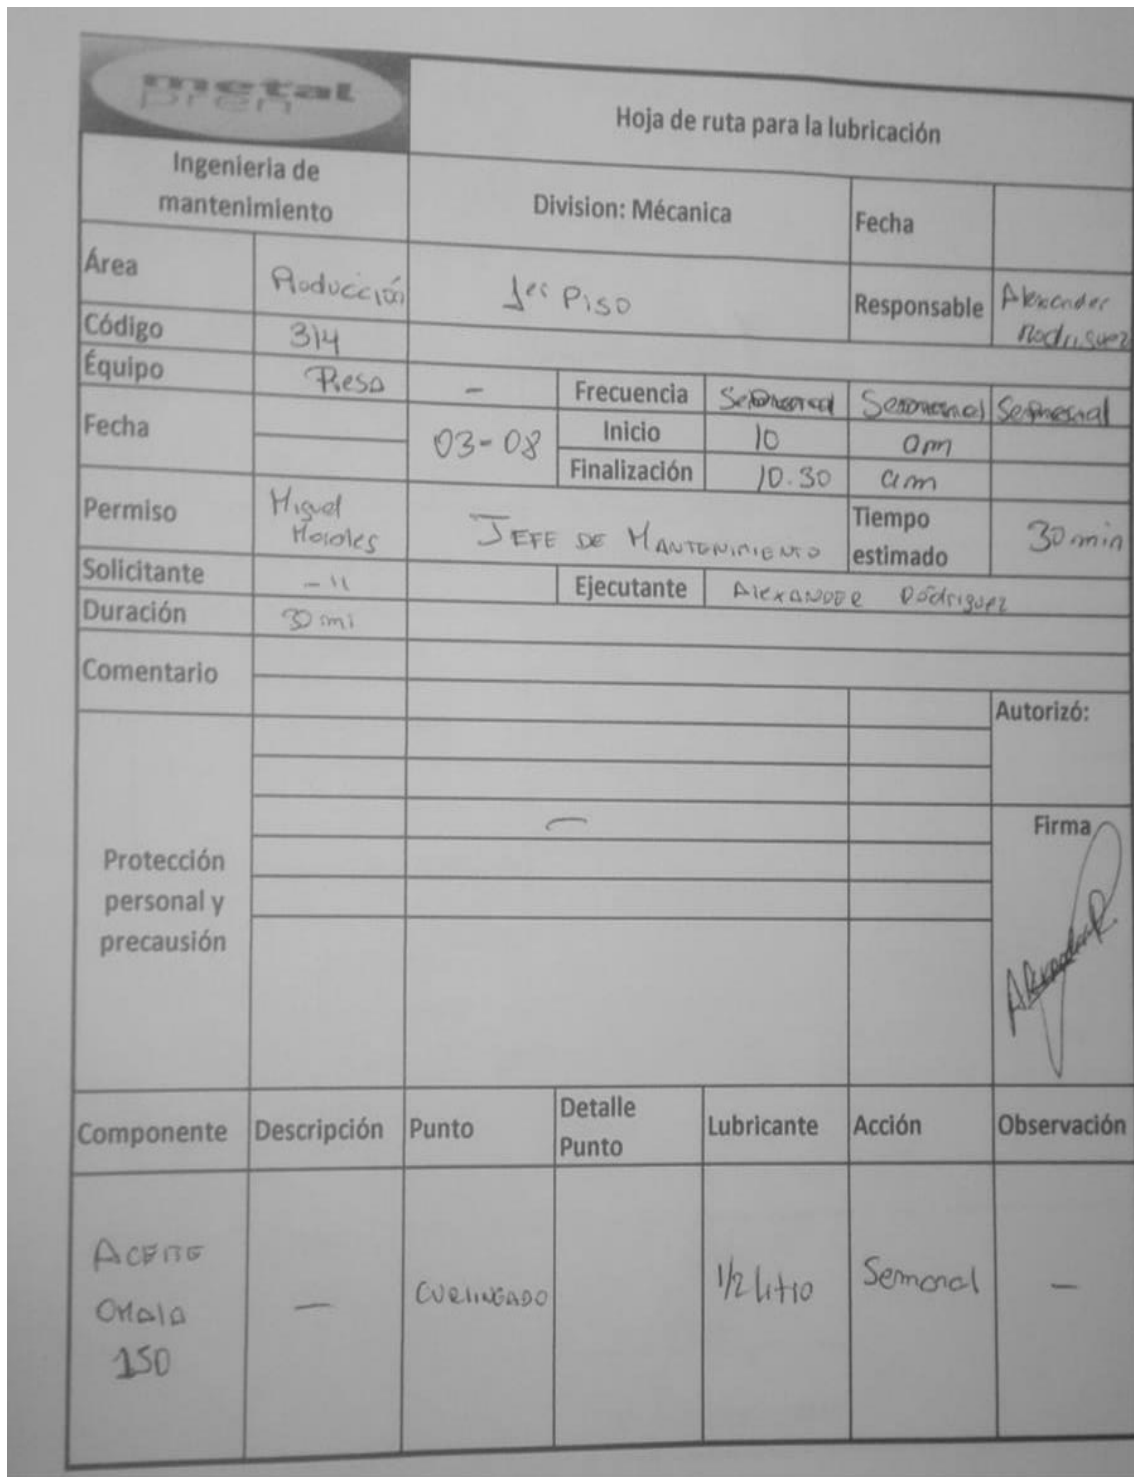 metal
pren
Hoja de ruta para la lubricación
Ingenieria de
mantenimiento
Division: Mécanica
Fecha
Área
Producción
1er Piso
Responsable
Alexander
Rodriguez
Código
314
Équipo
Presa
-
Frecuencia
Semanal
Semanal
Semanal
Fecha
03-08
Inicio
10
am
Finalización
10.30
am
Permiso
Miguel
Morales
JEFE DE MANTENIMIENTO
Tiempo
estimado
30 min
Solicitante
-11
Ejecutante
ALEXANDER Rodriguez
Duración
30 mi
Comentario
Autorizó:
Protección
personal y
precausión
Firma
Componente
Descripción
Punto
Detalle
Punto
Lubricante
Acción
Observación
ACEITE
OMALA
150
-
1/2 litro
Semanal
-